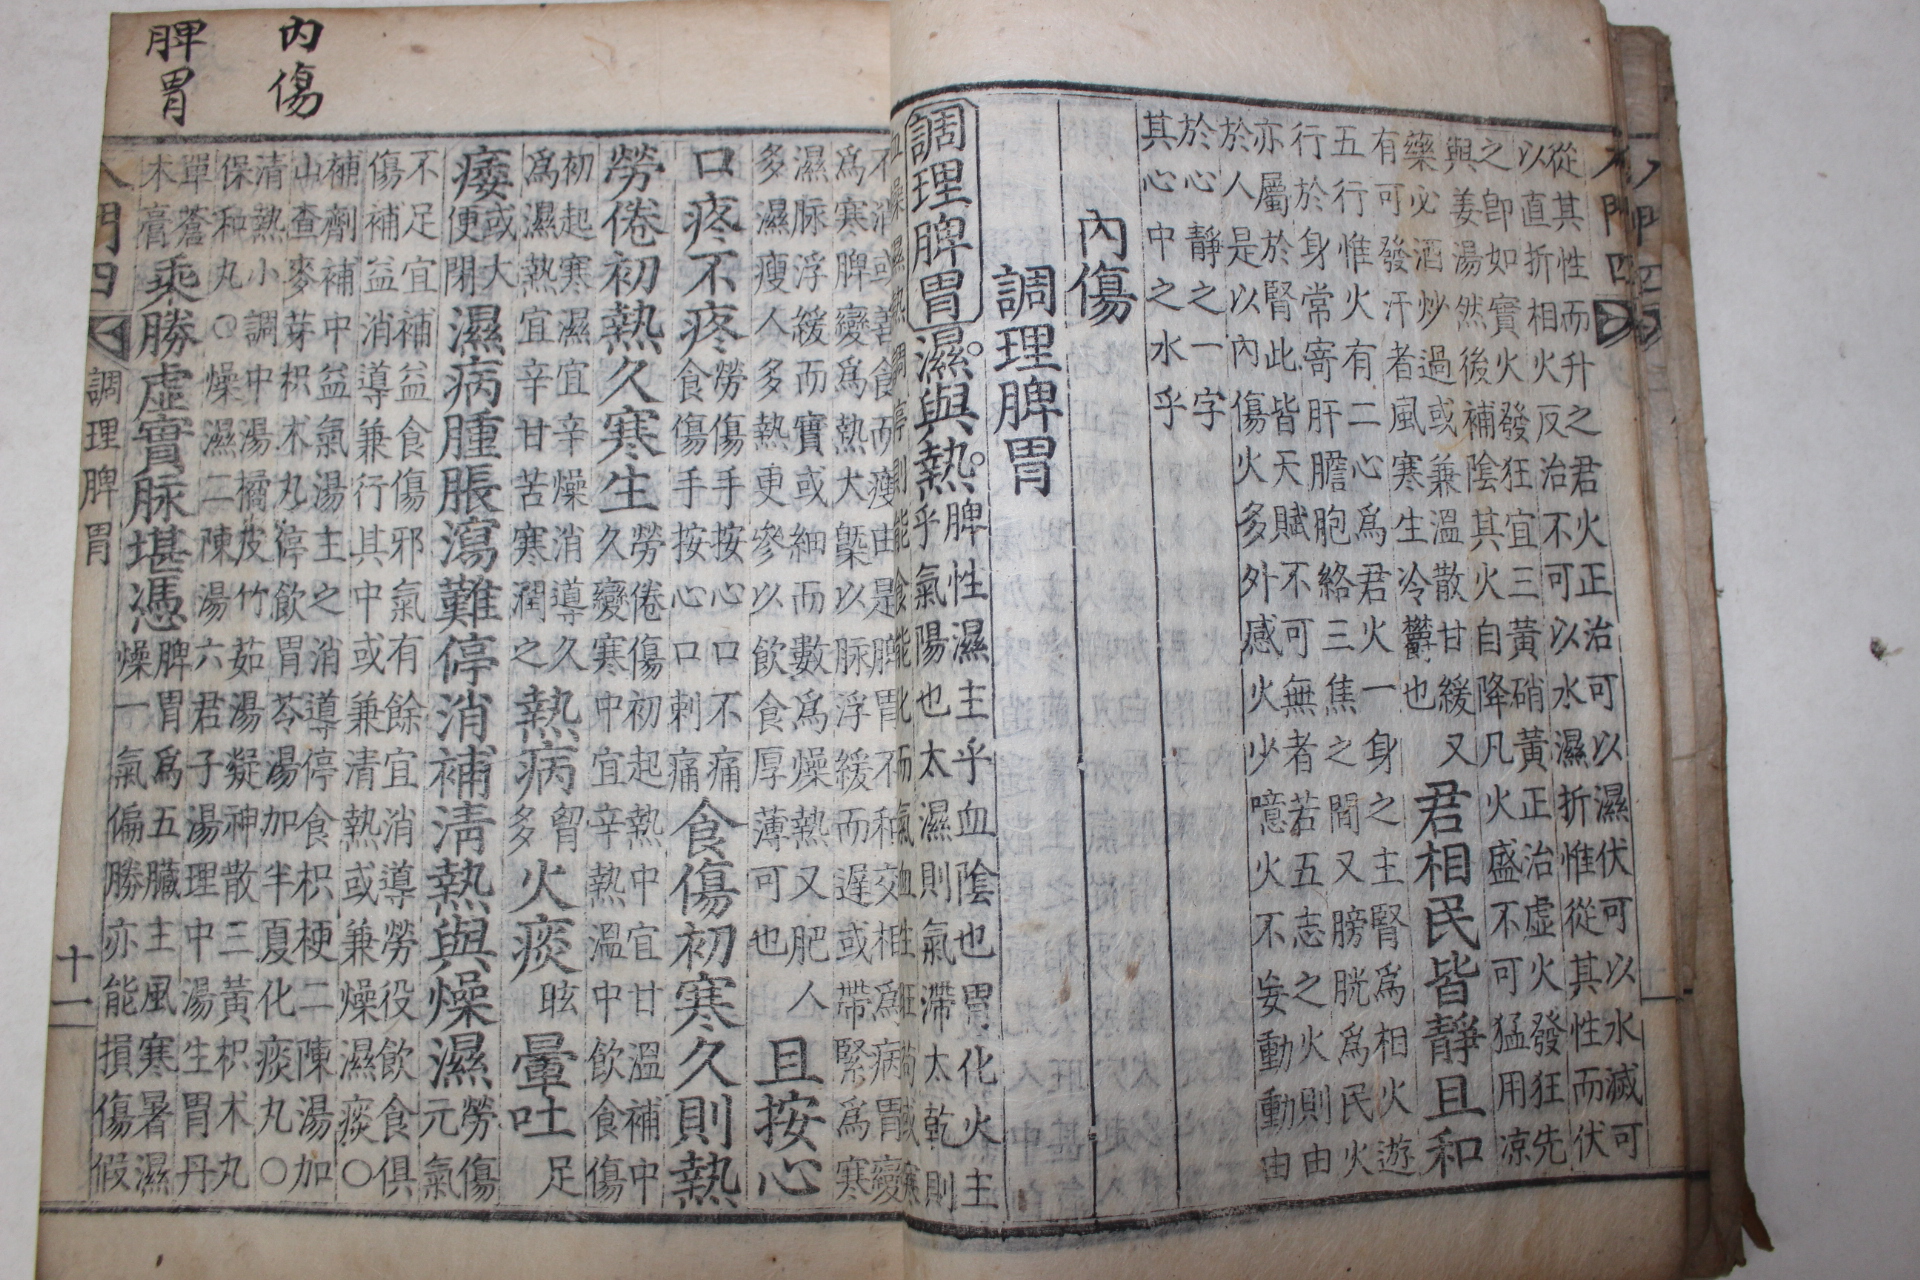 入門四
從其性而升之君火正治可以濕伏可以水滅可
以直折相火反治不可以水濕折惟從其性而伏
之卽如實火發狂宜三黃硝黃正治虛火發狂先
與姜湯然後補陰其火自降凡火盛不可猛用凉
藥必酒炒過或兼溫散甘緩又
有可發汗者風寒生冷鬱也
君相民皆靜且和
五行惟火有二心爲君火一身之主腎爲相火遊
行於身常寄肝膽胞絡三焦之間又膀胱爲民火
亦屬於腎此皆天賦不可無者若五志之火則由
於人是以內傷火多外感火少噫火不妄動動由
於心靜之一字
其心中之水乎
內傷
調理脾胃
調理脾胃濕與熱
脾性濕主乎血陰也胃化火主
乎氣陽也太濕則氣滯太乾則
血燥濕熱調停則能食能化而氣血
不消或善食而瘦由是脾胃不和交相爲病胃變
爲寒脾變爲熱大槩以脉浮緩而遲或帶緊爲寒
濕脉浮緩而實或紬而數爲燥熱又肥人
多濕瘦人多熱更參以飮食厚薄可也
且按心
口疼不疼
勞傷手按心口不痛
食傷手按心口刺痛
食傷初寒久則熱
勞倦初熱久寒生
勞倦傷初起熱中宜甘溫補中
久變寒中宜辛熱溫中飮食傷
初起寒濕宜辛燥消導久
爲濕熱宜辛甘苦寒潤之
熱病
胷
多
火痰
眩
暈吐
足
痿
或大
便閉
濕病腫脹瀉難停消補淸熱與燥濕
勞傷
元氣
不足宜補益食傷邪氣有餘宜消導勞役飮食俱
傷補益消導兼行其中或兼淸熱或兼燥濕痰○
補劑補中益氣湯主之消導停食枳梗二陳湯加
山查麥芽枳朮丸停飮胃苓湯加半夏化痰丸○
淸熱小調中湯橘皮竹茹湯凝神散三黃枳朮丸
保和丸○燥濕二陳湯六君子湯理中湯生胃丹
單蒼
木膏
乘勝虛實脉堪憑
脾胃爲五臟主風寒暑濕
燥一氣偏勝亦能損傷假
入門四 調理脾胃 十一
內傷
脾胃